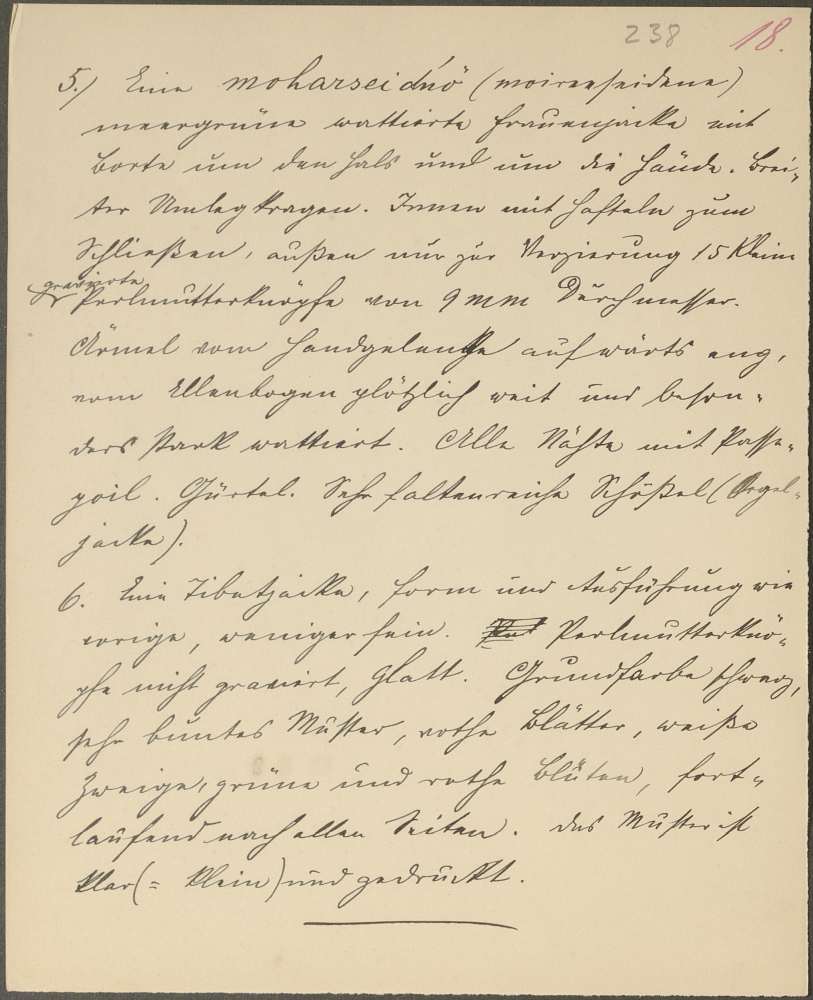 238 18.
5.) Eine moharseid'nö (moirenseidene)
meergrüne wattierte Frauenjacke mit
Borte um den Hals und um die Hände. Brei-
ter Umlegkragen. Innen mit Hafteln zum
Schließen, außen nur zur Verzierung 15 kleine
gravierte
Perlmutterknöpfe von 9 mm Durchmesser.
Ärmel vom Handgelenke aufwärts eng,
vom Ellenbogen plötzlich weit und beson-
ders stark wattiert. Alle Nähte mit Passe-
poil. Gürtel. Sehr faltenreiche Schößel (Orgel-
jacke).
6. Eine Tibetjacke, Form und Ausführung wie
vorige, weniger fein. Perlmutterknö-
pfe nicht graviert, glatt. Grundfarbe schwarz,
sehr buntes Muster, rothe Blätter, weiße
Zweige, grüne und rothe Blüten, fort-
laufend nach allen Seiten. Das Muster ist
klar (= klein) und gedruckt.